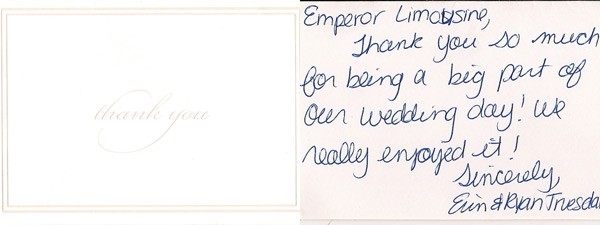 thank you
Emperor Limousine,
Thank you so much
for being a big part of
our wedding day! We
really enjoyed it!
Sincerely,
Erin & Ryan